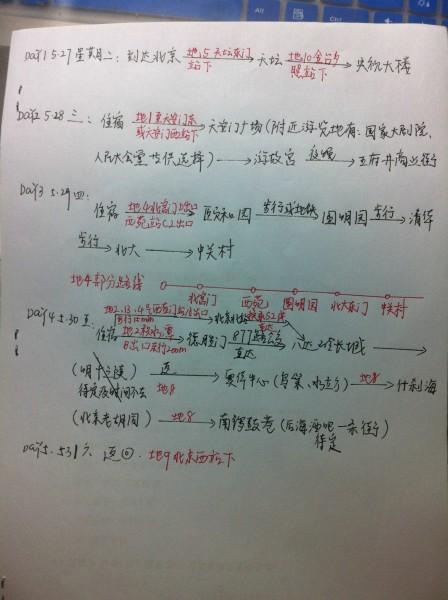 Day1 5.27 星期二: 到达北京 地5天坛东门站下 → 天坛 地10金台夕照站下 → 央视大楼
Day2 5.28 三: 住宿 地1至天安门东或天安门西站下 → 天安门广场(附近游览地有:国家大剧院、
人民大会堂 提供选择) → 游故宫 → 王府井商业街
Day3 5.29 四:
住宿 地4北宫门出口 西苑站C2出口 → 颐和园 步行或地铁 → 圆明园 步行 → 清华
步行 → 北大 → 中关村
地4部分路线 北宫门 西苑 圆明园 北大东门 中关村
Day4 5.30 五: 地2.13.4 西直门 出口 步行
住宿 地2积水潭 B出口 步行200m → 德胜门 877 直达 → 八达岭长城 →
(明十三陵) → 奥体中心(鸟巢、水立方) 地8 → 什刹海
待定 时间不够 地8
(北京老胡同) 地8 → 南锣鼓巷(后海酒吧一条街)
待定
Day5. 5.31 六 返回. 地9北京西站下